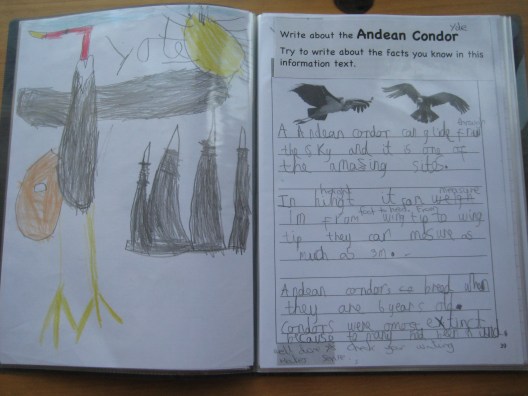 yote
yote
Write about the Andean Condor
Try to write about the facts you know in this
information text.
A Andean condor can glide
the sky and it is one of
the amazing sites.
height measure
In hight it can weigh
foot to head. From
1m From wing tip to wing
tip they can masure as
much as 3m.
Andean condors breed when
they are 6 years old.
Condors were among extinct
because to many had been
well done
39